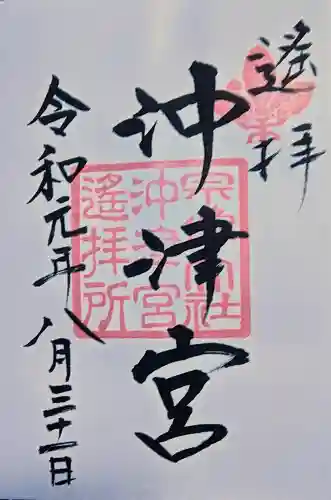 遙拝
沖津宮
令和元年八月三十一日
宗像大社
沖津宮
遙拝所